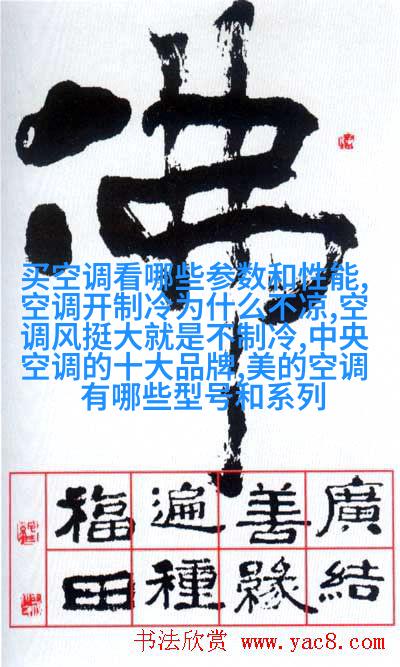 佛
买空调看哪些参数和性能,
空调开制冷为什么不凉,空
调风挺大就是不制冷,中央
空调的十大品牌,美的空调
有哪些型号和系列
廣結
善緣
遍種
福田
书法欣赏 www.yac8.com